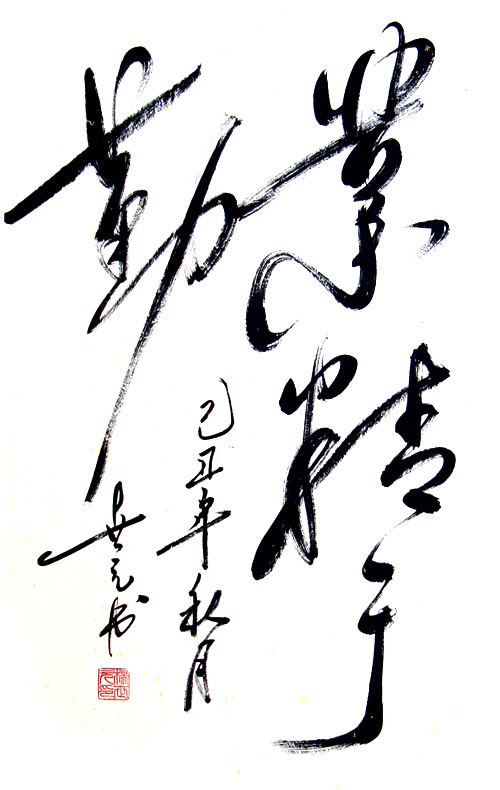 業精于
勤
己丑年秋月
世元书